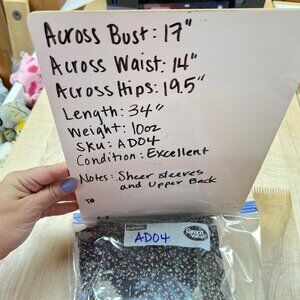 Across Bust: 17"
Across Waist: 14"
Across Hips: 19.5"
Length: 34"
Weight: 10oz
Sku: AD04
Condition: Excellent
Notes: Sheer sleeves
and upper Back
TB
AD04
Great Value